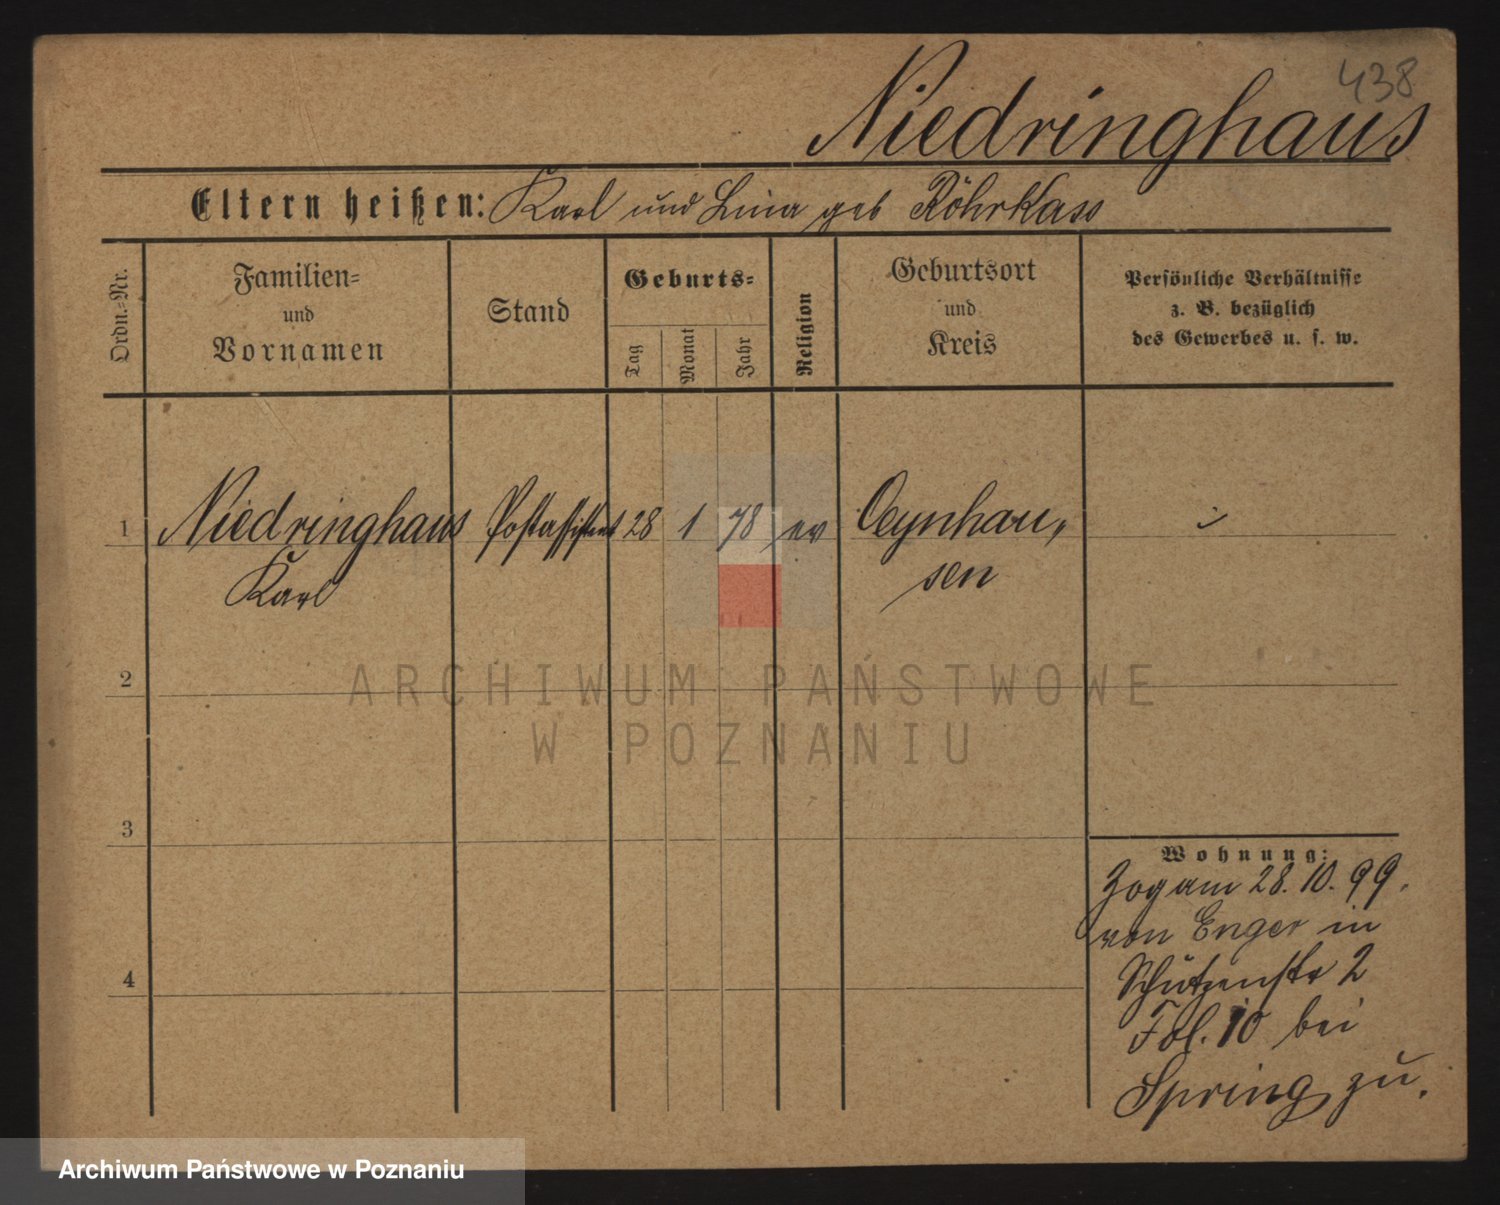 438
Niedringhaus
Eltern heißen: Karl und Lina geb Röhrkass
Ordn.-Nr.
Familien-
und
Vornamen
Stand
Geburts-
Tag
Monat
Jahr
Religion
Geburtsort
und
Kreis
Persönliche Verhältnisse
z. B. bezüglich
des Gewerbes u. s. w.
1 Niedringhaus Postassistent 28 1 78 ev Oeynhau,
Karl
sen
2
3
4
Wohnung:
Zog am 28. 10. 99.
von Enger in
Schützenstr 2
Fol. 10 bei
Spring zu.
ARCHIWUM PAŃSTWOWE
W POZNANIU
Archiwum Państwowe w Poznaniu